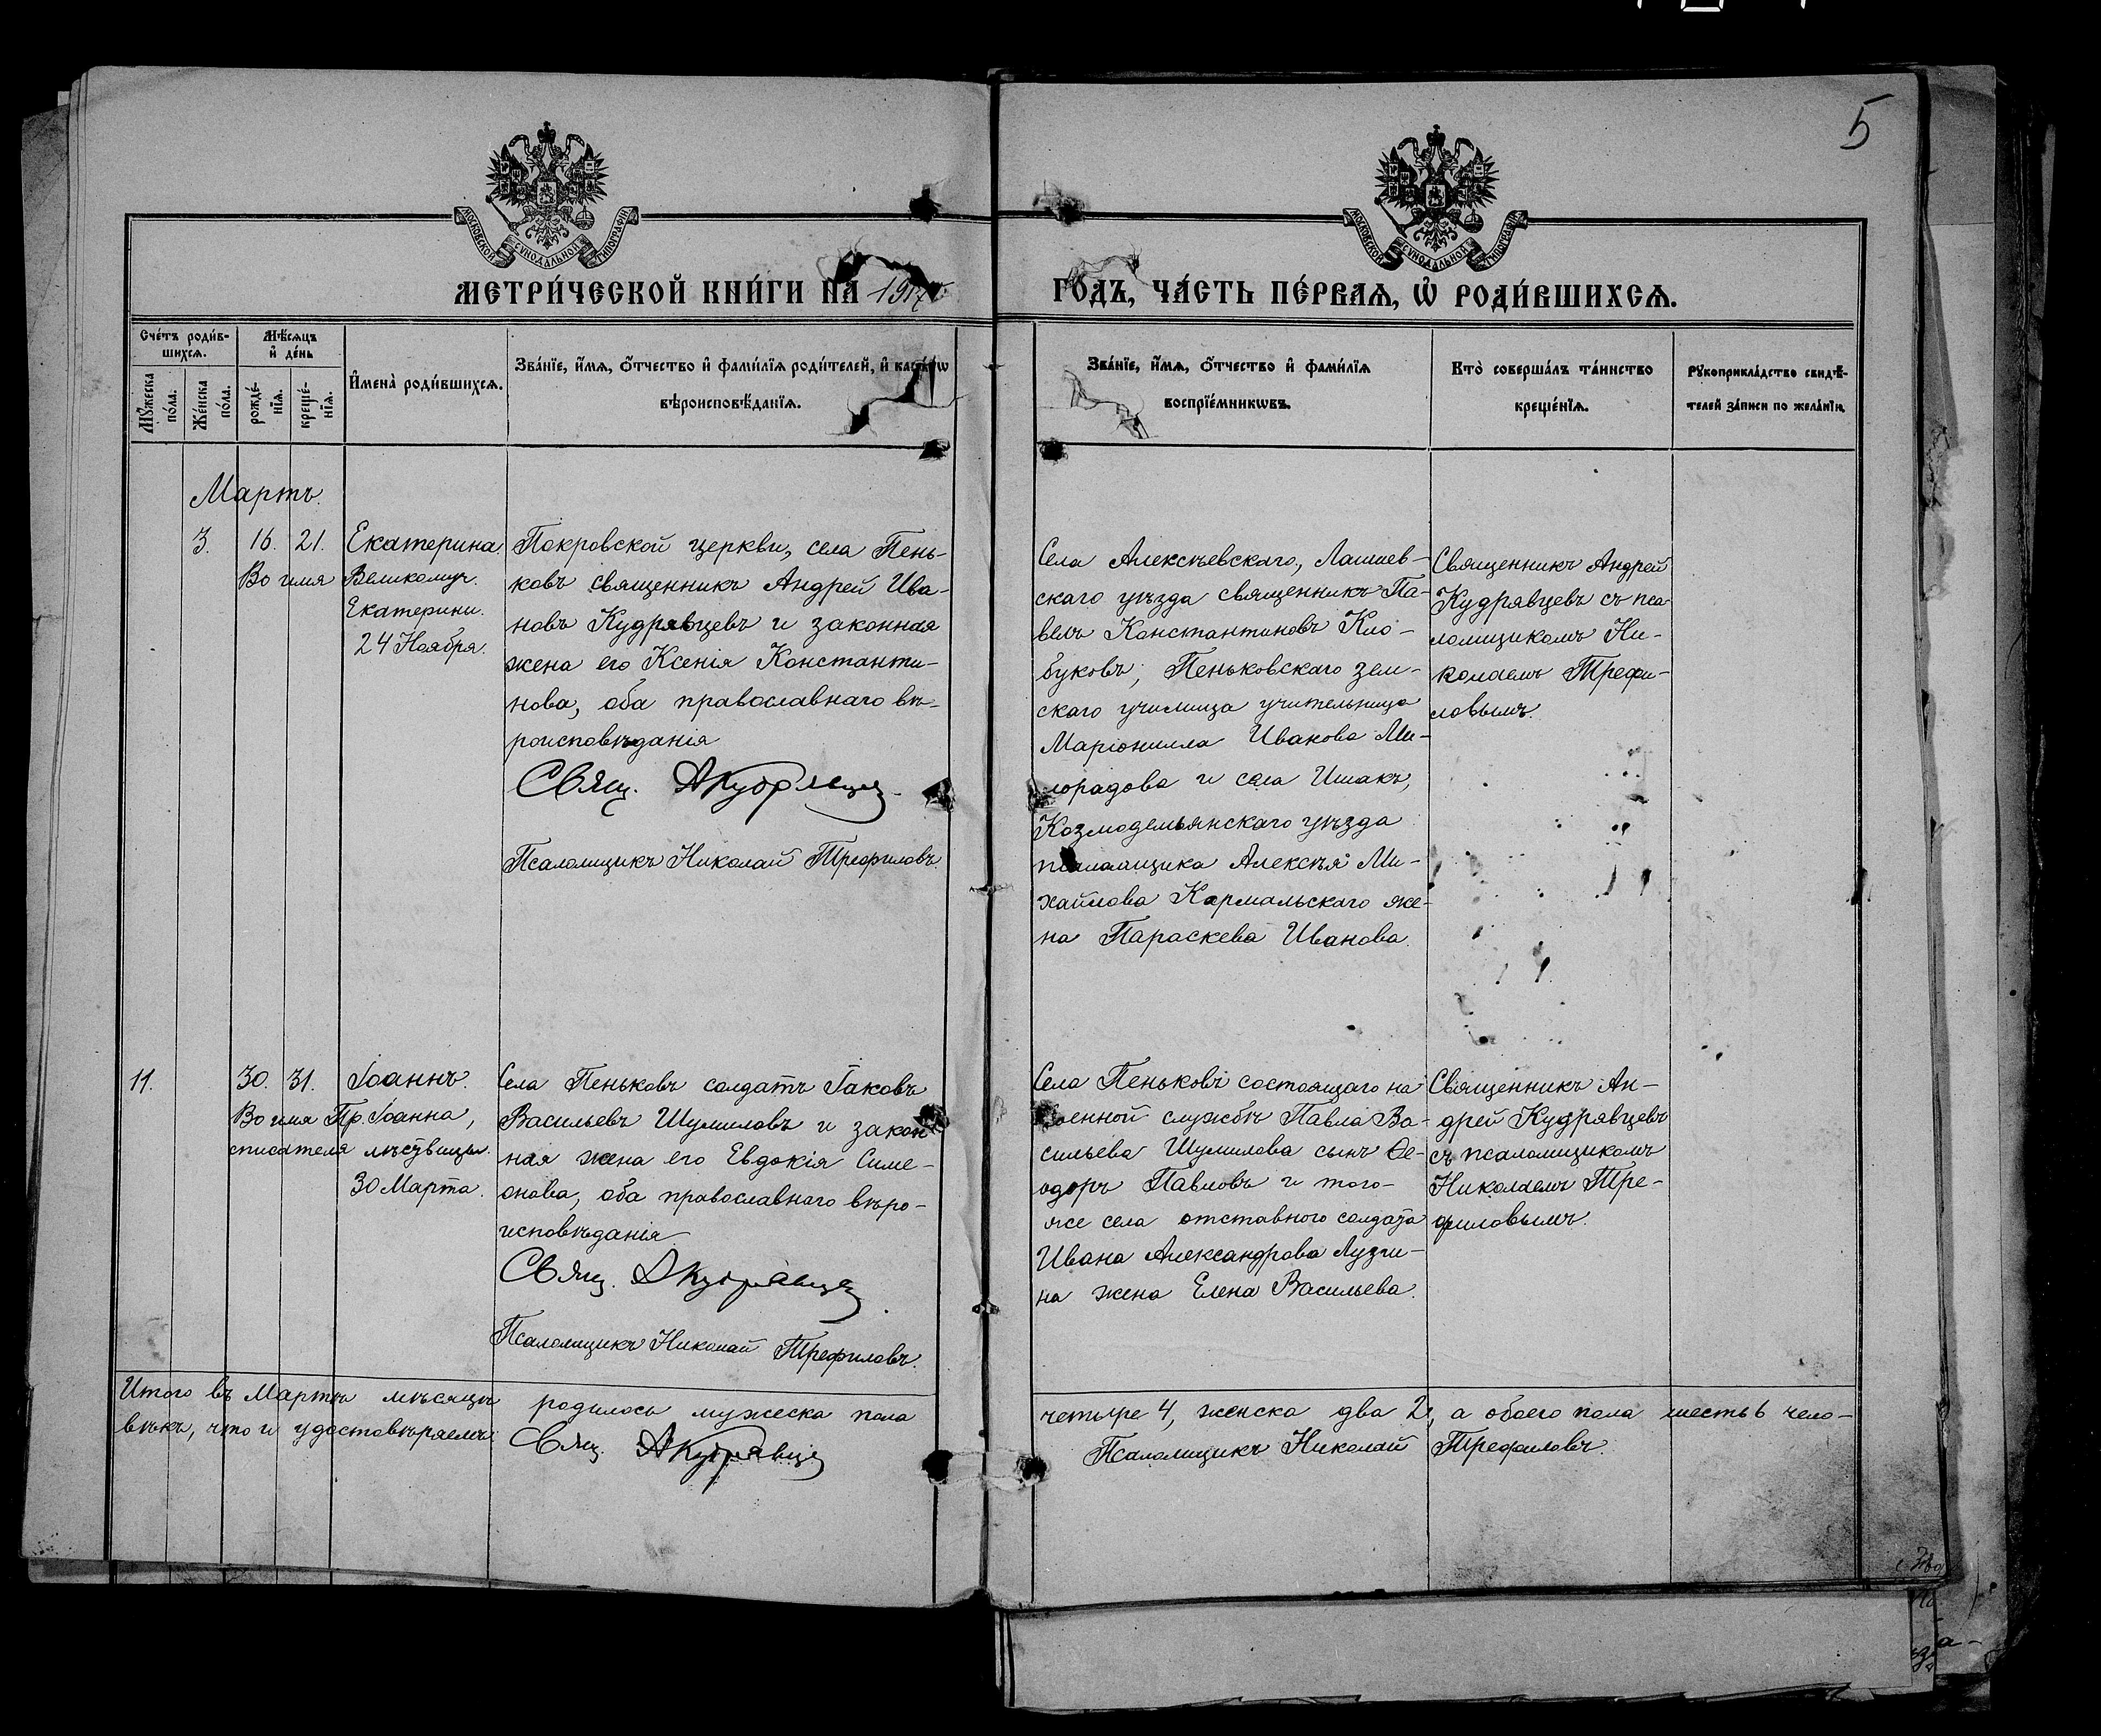 5
МОСКОВСКОЙ СѴНОДАЛЬНОЙ ТИПОГРАФІИ
МОСКОВСКОЙ СѴНОДАЛЬНОЙ ТИПОГРАФІИ
МЕТРИ́ЧЕСКОЙ КНИ́ГИ НА 1917 ГО́ДЪ, ЧА́СТЬ ПЕ́РВАѦ, Ѡ҆ РОДИ́ВШИХСѦ.
Сче́тъ роди́в-
шихсѧ.
Мѣ́сѧцъ
и҆ де́нь
Мꙋ́жеска
по́ла.
Же́нска
по́ла.
рожде́-
нїѧ.
креще́-
нїѧ.
И҆мена̀ роди́вшихсѧ.
Зва́нїе, и҆́мѧ, ѻ҆́тчество и҆ фами́лїѧ роди́телей, и҆ како́гѡ
вѣроисповѣ́данїѧ.
Зва́нїе, и҆́мѧ, ѻ҆́тчество и҆ фами́лїѧ
воспрїе́мникѡвъ.
Кто̀ соверша́лъ та́инство
креще́нїѧ.
Рꙋкоприкла́дство свидѣ́-
телей за́писи по жела́нїю.
Мартъ.
3. 16. 21. Екатерина.
Во имя Великомуч.
Екатерины.
24 Ноября.
Покровской церкви, села Пень-
ковъ священникъ Андрей Ива-
новъ Кудрявцевъ и законная
жена его Ксенія Константи-
нова, оба православнаго вѣ-
роисповѣданія
Свящ. АКудрявцев
Псаломщикъ Николай Трефиловъ.
Села Алексѣевскаго, Лаишев-
скаго уѣзда священникъ Па-
велъ Константиновъ Кло-
буковъ; Пеньковскаго зем-
скаго училища учительница
Маріонилла Ивакова Ми-
лорадова и села Ишакъ,
Козмодемьянскаго уѣзда
псаломщика Алексѣя Ми-
хайлова Кармальскаго же-
на Параскева Иванова.
Священникъ Андрей
Кудрявцевъ съ пса-
ломщикомъ Ни-
колаемъ Трефи-
ловымъ.
11. 30. 31. Іоаннъ.
Во имя Пр. Іоанна,
списателя лѣствицы.
30 Марта.
Села Пеньковъ солдатъ Іаковъ
Васильевъ Шумиловъ и закон
ная жена его Евдокія Симе-
онова, оба православнаго вѣро-
исповѣданія
Свящ. АКудрявцев
Псаломщикъ Николай Трефиловъ.
Села Пеньковъ состоящаго на
военной службѣ Павла Ва-
сильева Шумилова сынъ Ѳе-
одоръ Павловъ и того-
же села отставного солдата
Ивана Александрова Лузги-
на жена Елена Васильева.
Священникъ Ан-
дрей Кудрявцевъ
съ псаломщикомъ
Николаемъ Тре-
филовымъ.
Итого въ Мартѣ мѣсяцѣ родилось мужеска пола четыре 4, женска два 2, а обоего пола шесть 6 чело-
вѣкъ, что и удостовѣряемъ: Свящ. АКудрявцев Псаломщикъ Николай Трефиловъ.